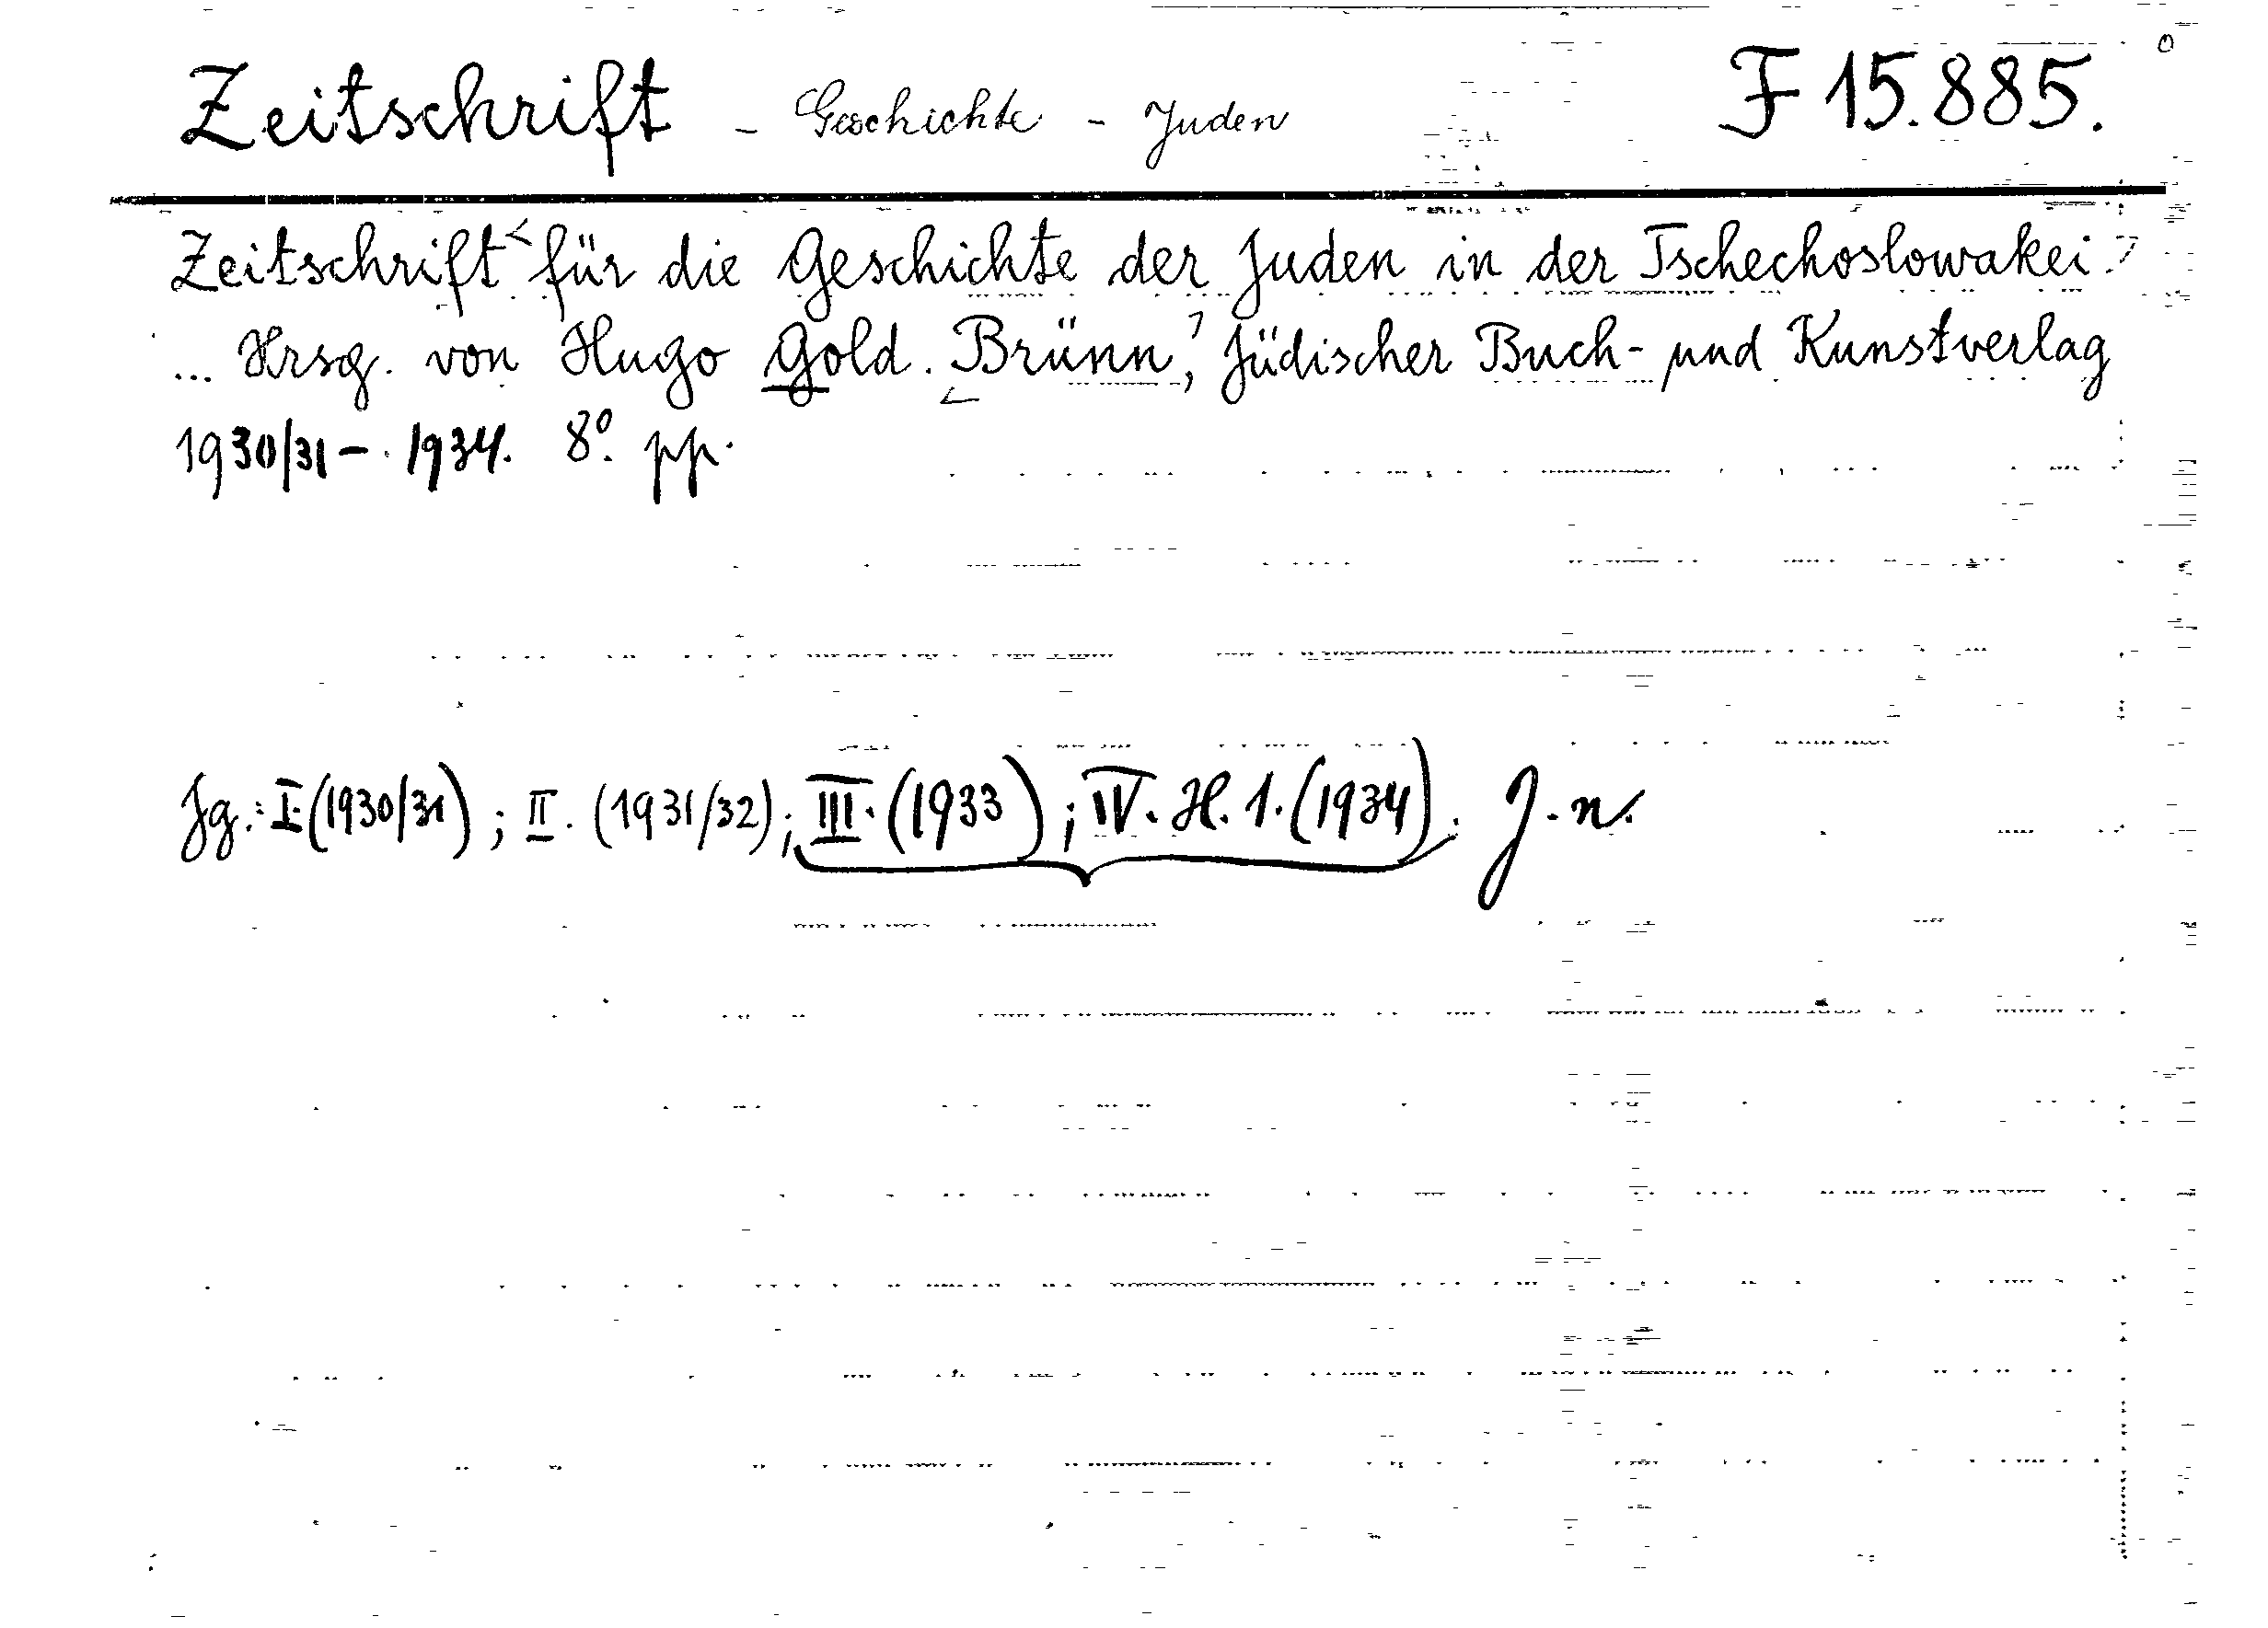 Zeitschrift - Geschichte - Juden F 15.885.
Zeitschrift für die Geschichte der Juden in der Tschechoslowakei.
... Hrsg. von Hugo Gold. Brünn, Jüdischer Buch- und Kunstverlag
1930/31-1934. 8º. pp.
Jg.: I. (1930/31); II. (1931/32); III. (1933); IV. H. 1. (1934). J. n.